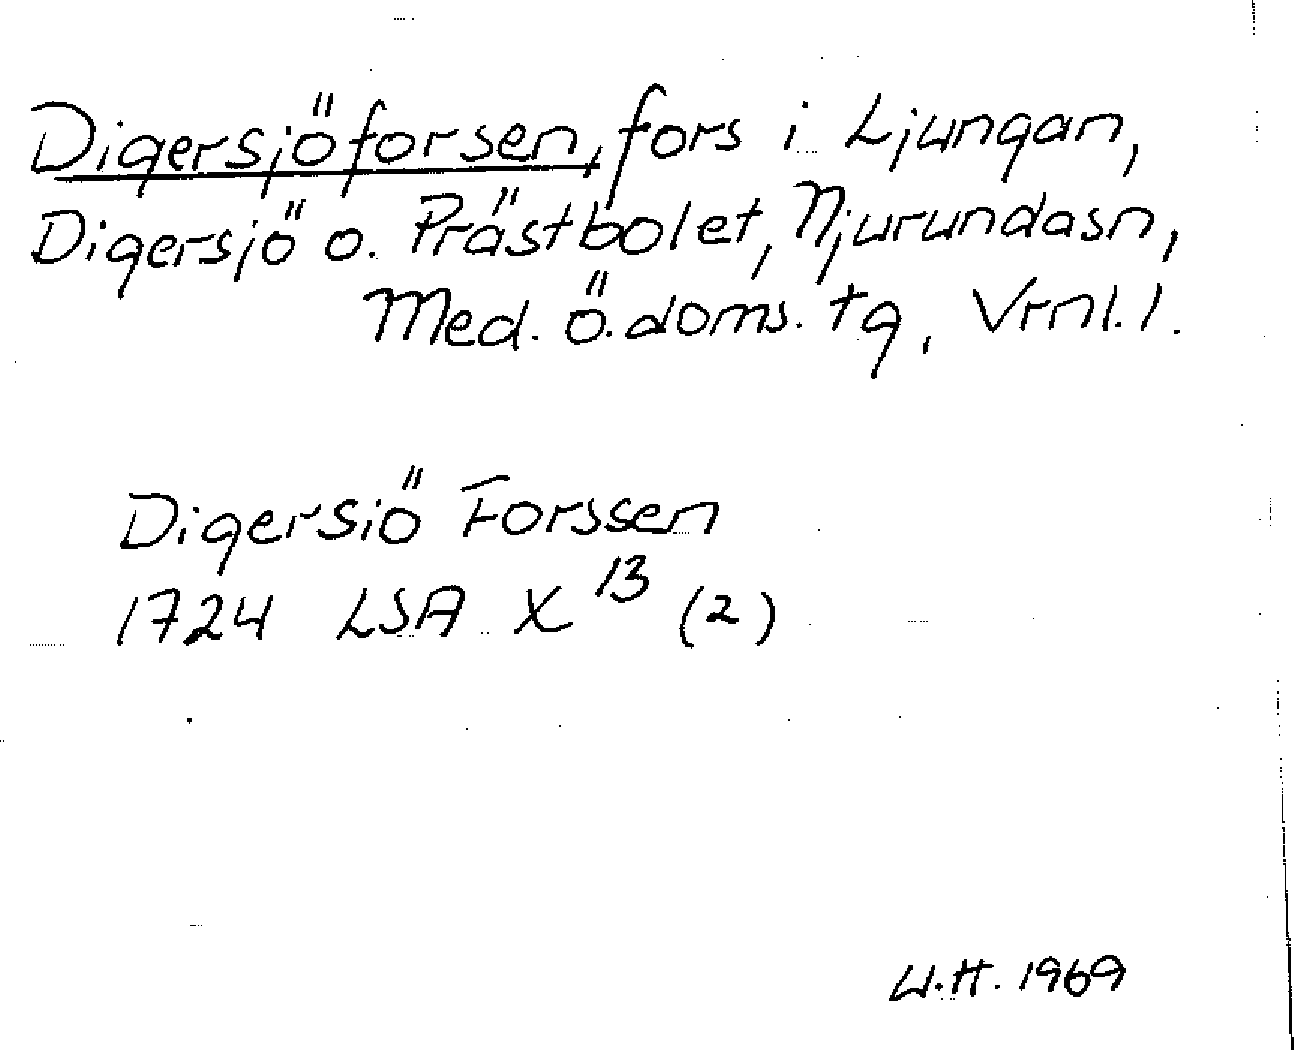 Digersjöforsen, fors i Ljungan,
Digersjö o. Prästbolet, Njurundasn,
Med. ö. doms. tg, Vrnl. l.
Digersiö Forssen
1724 LSA X 13 (2)
U.H. 1969